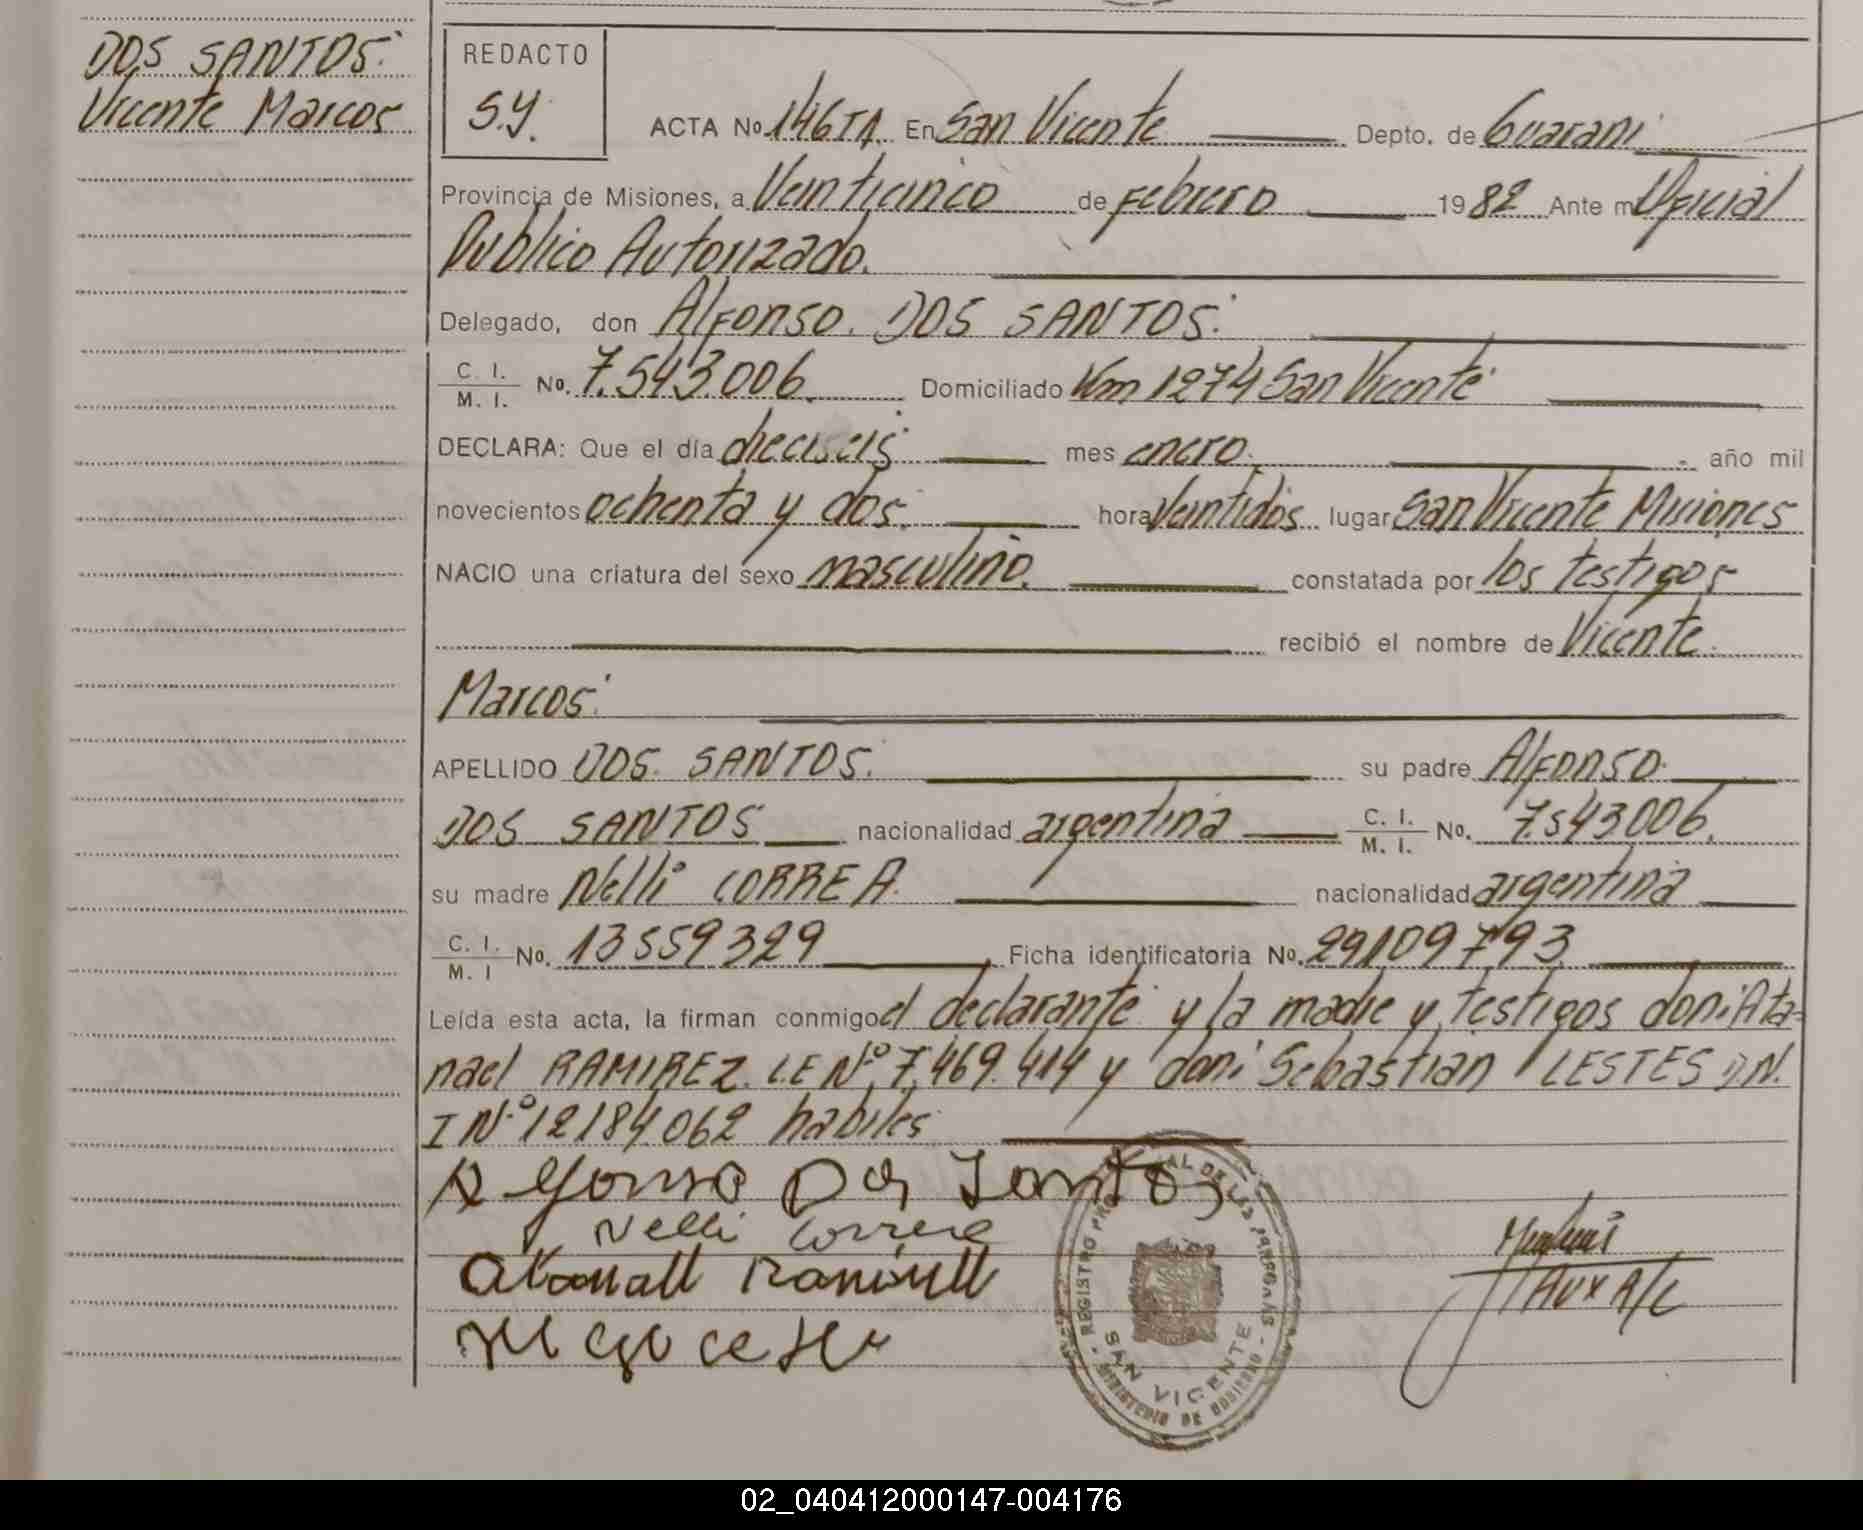 DOS SANTOS.
Vicente Marcos
REDACTO
S.Y.
ACTA No. 146TA. En San Vicente Depto. de Guarani
Provincia de Misiones, a Veinticinco de febrero 1982 Ante mi Oficial
Publico Autorizado.
Delegado, don Alfonso. DOS SANTOS.
C. I.
M. I. No. 7.543.006. Domiciliado Km 1274 San Vicente
DECLARA: Que el día dieciseis mes enero. año mil
novecientos ochenta y dos. hora veintidos lugar San Vicente Misiones
NACIO una criatura del sexo masculino. constatada por los testigos
recibió el nombre de Vicente
Marcos.
APELLIDO DOS. SANTOS. su padre Alfonso
DOS SANTOS nacionalidad argentina C. I.
M. I. No. 7.543006.
su madre Nelli CORREA. nacionalidad argentina
C. I.
M. I No. 13559329 Ficha identificatoria No. 29109793
Leída esta acta, la firman conmigo el declarante y la madre y testigos don: Ata-
nael RAMIREZ. L.E Nº 7.469.414 y don: Sebastian LESTES D.N.
I Nº 12184.062 habiles
Alfonso Dos Santos
Nelli Correa
Aux A/C
SAN VICENTE
MINISTERIO DE GOBIERNO
02_040412000147-004176